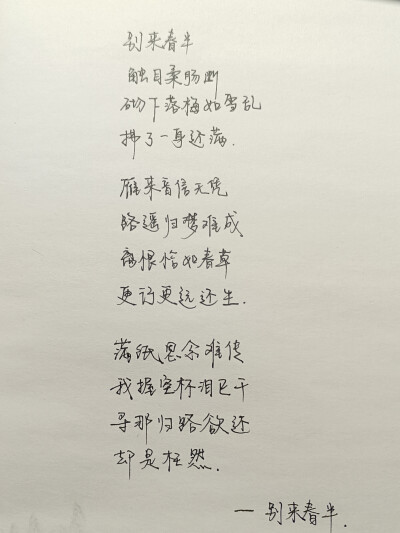 别来春半
触目柔肠断
砌下落梅如雪乱
拂了一身还满.
雁来音信无凭
路遥归梦难成
离恨恰如春草
更行更远还生.
满纸恩念难传
我握空杯泪已干
寻那归路欲还
却是枉然.
— 别来春半.